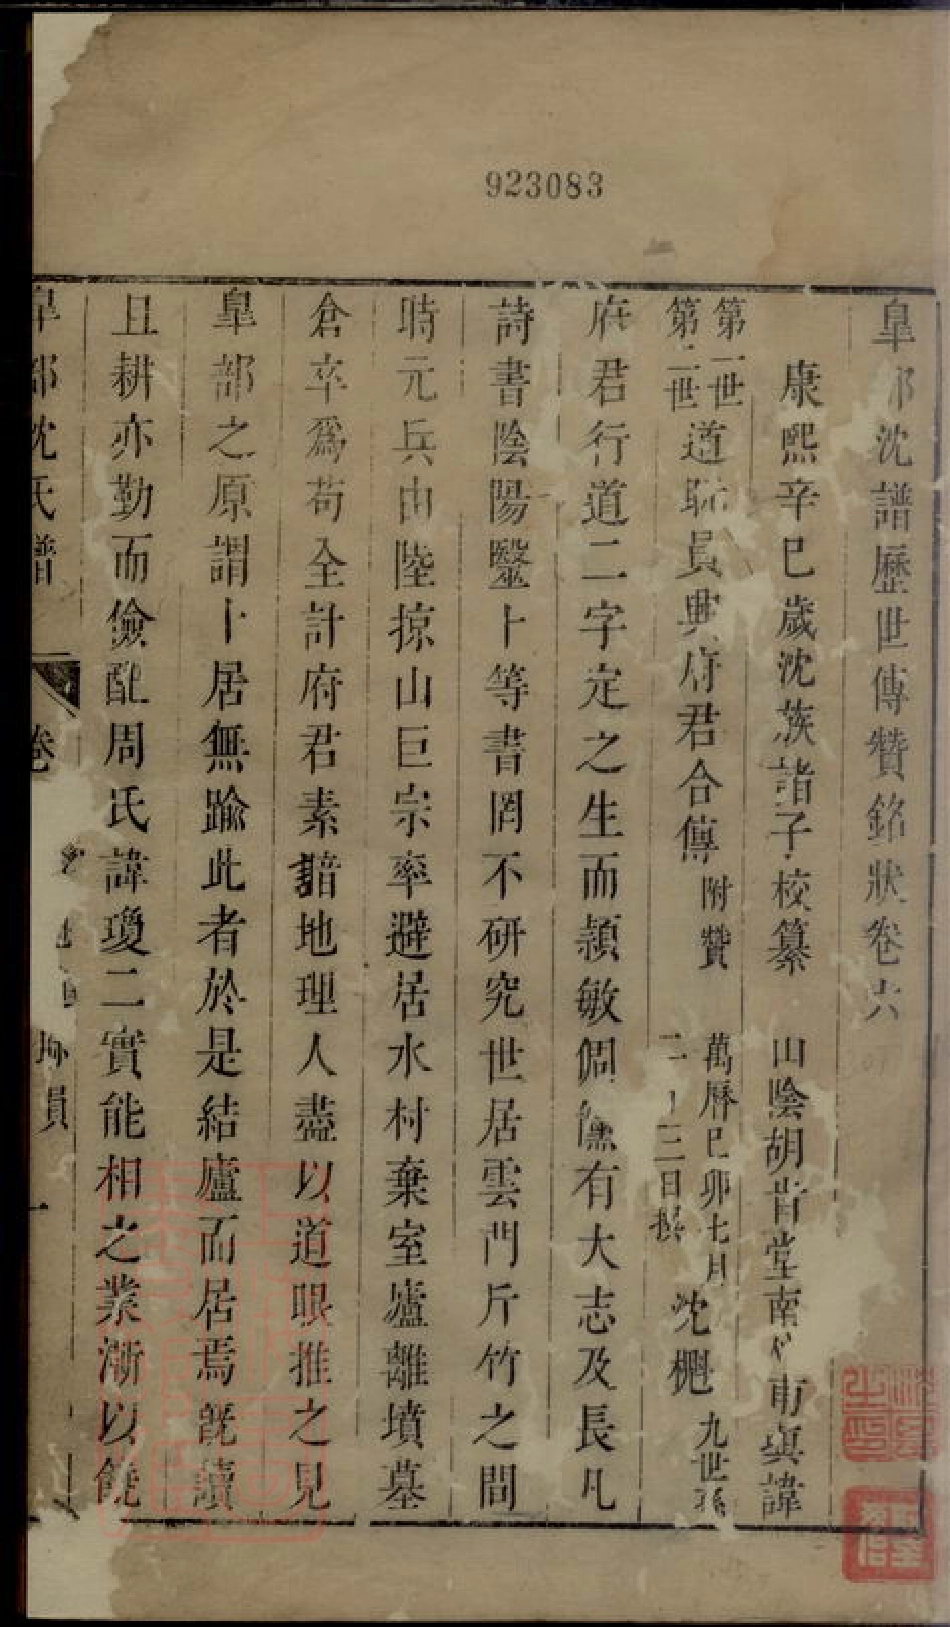 923083
皐部沈譜歷世傳贊銘狀卷六
康熙辛巳歲沈族諸子校纂 山陰胡肯堂南 甫填諱
第一世
第二世
道 員興府君合傳
附贊
萬曆己卯七月
二十三日撰
沈櫆
九世孫
府君行道二字定之生而穎敏倜儻有大志及長凡
詩書陰陽毉卜等書罔不研究世居雲門斤竹之間
時元兵由陸掠山巨宗率避居水村棄室廬離墳墓
倉卒爲苟全計府君素諳地理人盡以道眼推之見
皐部之原謂卜居無踰此者於是結廬而居焉旣讀
且耕亦勤而儉配周氏諱瓊二實能相之業漸以饒
皐部沈氏譜
卷